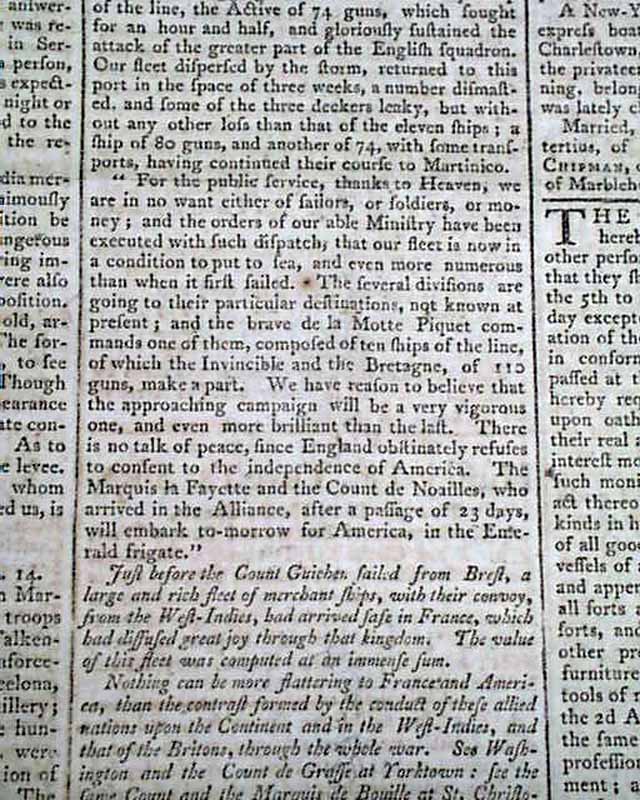 answer-
was re-
in Ser-
a person,
s expect-
night or
ed to the
the re-
dia mer-
aimously
ition be
angerous
ring im-
were also
position.
old, ar-
The for-
, to see
Though
pearance
ate con-
As to
e levee.
whom
ed us, is
. 14.
n Mar-
troops
Falken-
nforce-
celona,
illery;
e hun-
were
ion of
The
of the line, the Active of 74 guns, which fought
for an hour and half, and gloriouſly ſuſtained the
attack of the greater part of the Engliſh ſquadron.
Our fleet diſperſed by the ſtorm, returned to this
port in the ſpace of three weeks, a number diſmaſt-
ed, and ſome of the three deckers leaky, but with-
out any other loſs than that of the eleven ſhips; a
ſhip of 80 guns, and another of 74, with ſome tranſ-
ports, having continued their courſe to Martinico.
" For the public ſervice, thanks to Heaven, we
are in no want either of ſailors, or ſoldiers, or mo-
ney; and the orders of our able Miniſtry have been
executed with ſuch diſpatch, that our fleet is now in
a condition to put to ſea, and even more numerous
than when it firſt ſailed. The ſeveral diviſions are
going to their particular deſtinations, not known at
preſent; and the brave de la Motte Piquet com-
mands one of them, compoſed of ten ſhips of the line,
of which the Invincible and the Bretagne, of 110
guns, make a part. We have reaſon to believe that
the approaching campaign will be a very vigorous
one, and even more brilliant than the laſt. There
is no talk of peace, ſince England obſtinately refuſes
to conſent to the independence of America. The
Marquis la Fayette and the Count de Noailles, who
arrived in the Alliance, after a paſſage of 23 days,
will embark to-morrow for America, in the Eme-
rald frigate."
Juſt before the Count Guichen ſailed from Breſt, a
large and rich fleet of merchant ſhips, with their convoy,
from the Weſt-Indies, had arrived ſafe in France, which
had diffuſed great joy through that kingdom. The value
of this fleet was computed at an immenſe ſum.
Nothing can be more flattering to France and Ameri-
ca, than the contraſt formed by the conduct of theſe allied
nations upon the Continent and in the Weſt-Indies, and
that of the Britons, through the whole war. See Waſh-
ington and the Count de Graſſe at Yorktown: ſee the
ſame Count and the Marquis de Bouille at St. Chriſto-
A New-Y
expreſs boat
Charleſtown
the privateer
ning, belong
was lately c
Married,
tertius, of
CHIPMAN, o
of Marbleh
THE
hereb
other perſo
that they ſh
the 5th to
day except
ation of th
in conform
paſſed at t
hereby req
upon oath
their real
intereſt mo
ſuch moni
act thereo
kinds in h
of all goo
veſſels of
and appe
all ſorts
forts, and
other pr
furniture
tools of
the 2d A
the ſame
profeſſio
ment; a